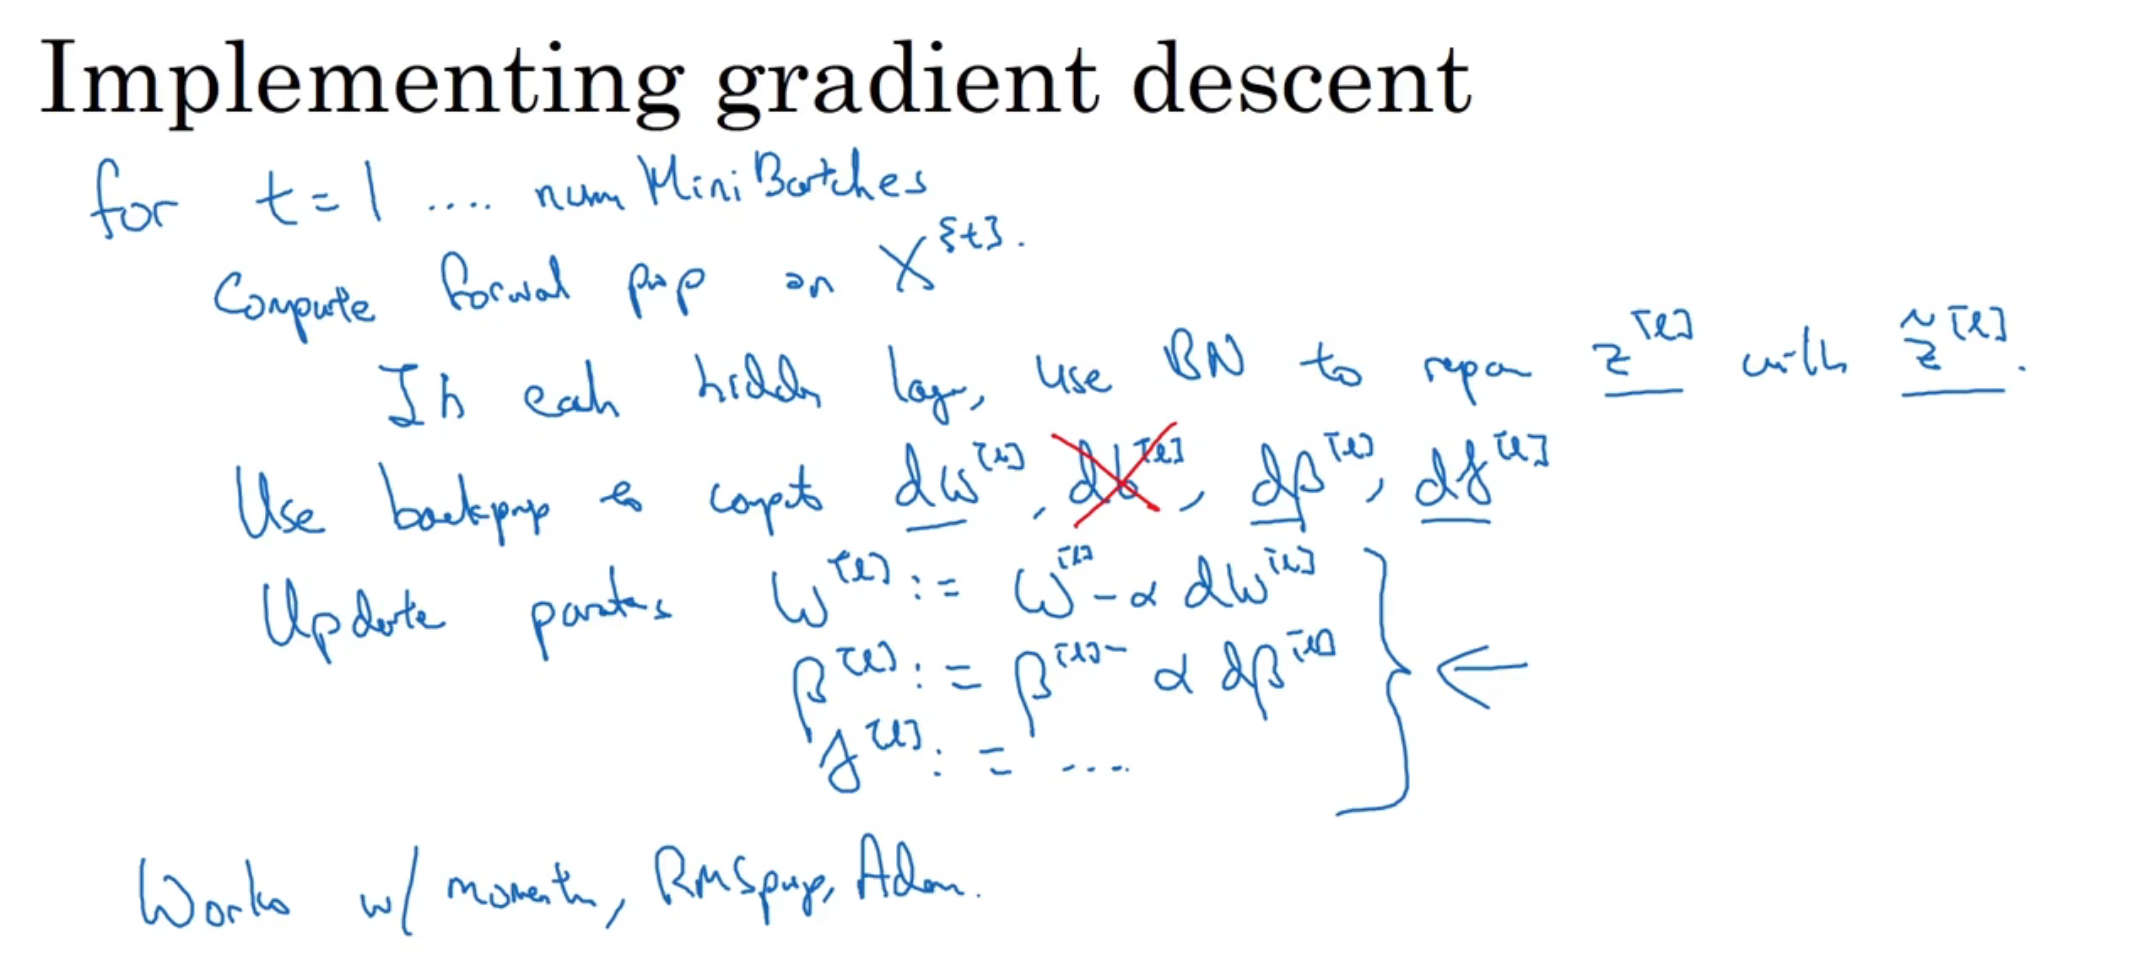 Implementing gradient descent
for t=1 .... num MiniBatches
Compute forwal prop on X^{t}.
In each hidden layer, use BN to repan z^[l] with z̃^[l].
Use backprop to compute dw^[l], db^[l], dβ^[l], dγ^[l]
Update parates w^[l] := w^[l] - α dw^[l]
β^[l] := β^[l] - α dβ^[l]
γ^[l] := ....
Works w/ momentum, RMSprop, Adam.